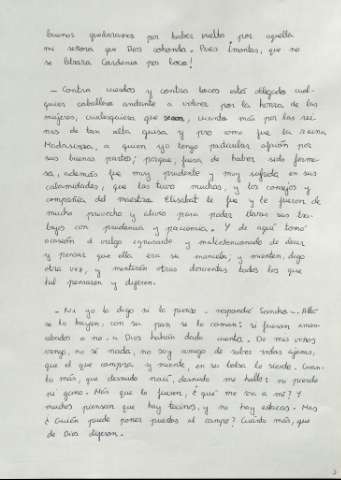 buenos quedáramos por haber vuelto por aquella
mi señora que Dios cohonda. Pues ¡montas, que no
se librara Cardenio por loco!
– Contra cuerdos y contra locos está obligado cual-
quier caballero andante a volver por la honra de las
mujeres, cualesquiera que sean, cuanto más por las rei-
nas de tan alta guisa y pro como fue la reina
Madasima, a quien yo tengo particular afición por
sus buenas partes; porque, fuera de haber sido fermo-
sa, además fue muy prudente y muy sufrida en sus
calamidades, que las tuvo muchas, y los consejos y
compañía del maestro Elisabat le fue y le fueron de
mucho provecho y alivio para poder llevar sus tra-
bajos con prudencia y paciencia. Y de aquí tomó
ocasión el vulgo ignorante y malintencionado de decir
y pensar que ella era su manceba; y mienten, digo
otra vez, y mentirán otras doscientas todos los que
tal pensaren y dijeren.
– Ni yo lo digo ni lo pienso – respondió Sancho –. Allá
se lo hayan, con su pan se lo coman: si fueron aman-
cebados o no, a Dios habrán dado cuenta. De mis viñas
vengo, no sé nada, no soy amigo de saber vidas ajenas,
que el que compra y miente, en su bolsa lo siente. Cuan-
to más, que desnudo nací, desnudo me hallo: ni pierdo
ni gano. Mas que lo fueran, ¿qué me va a mí? Y
muchos piensan que hay tocinos, y no hay estacas. Mas
¿quién puede poner puertas al campo? Cuanto más, que
de Dios dijeron.